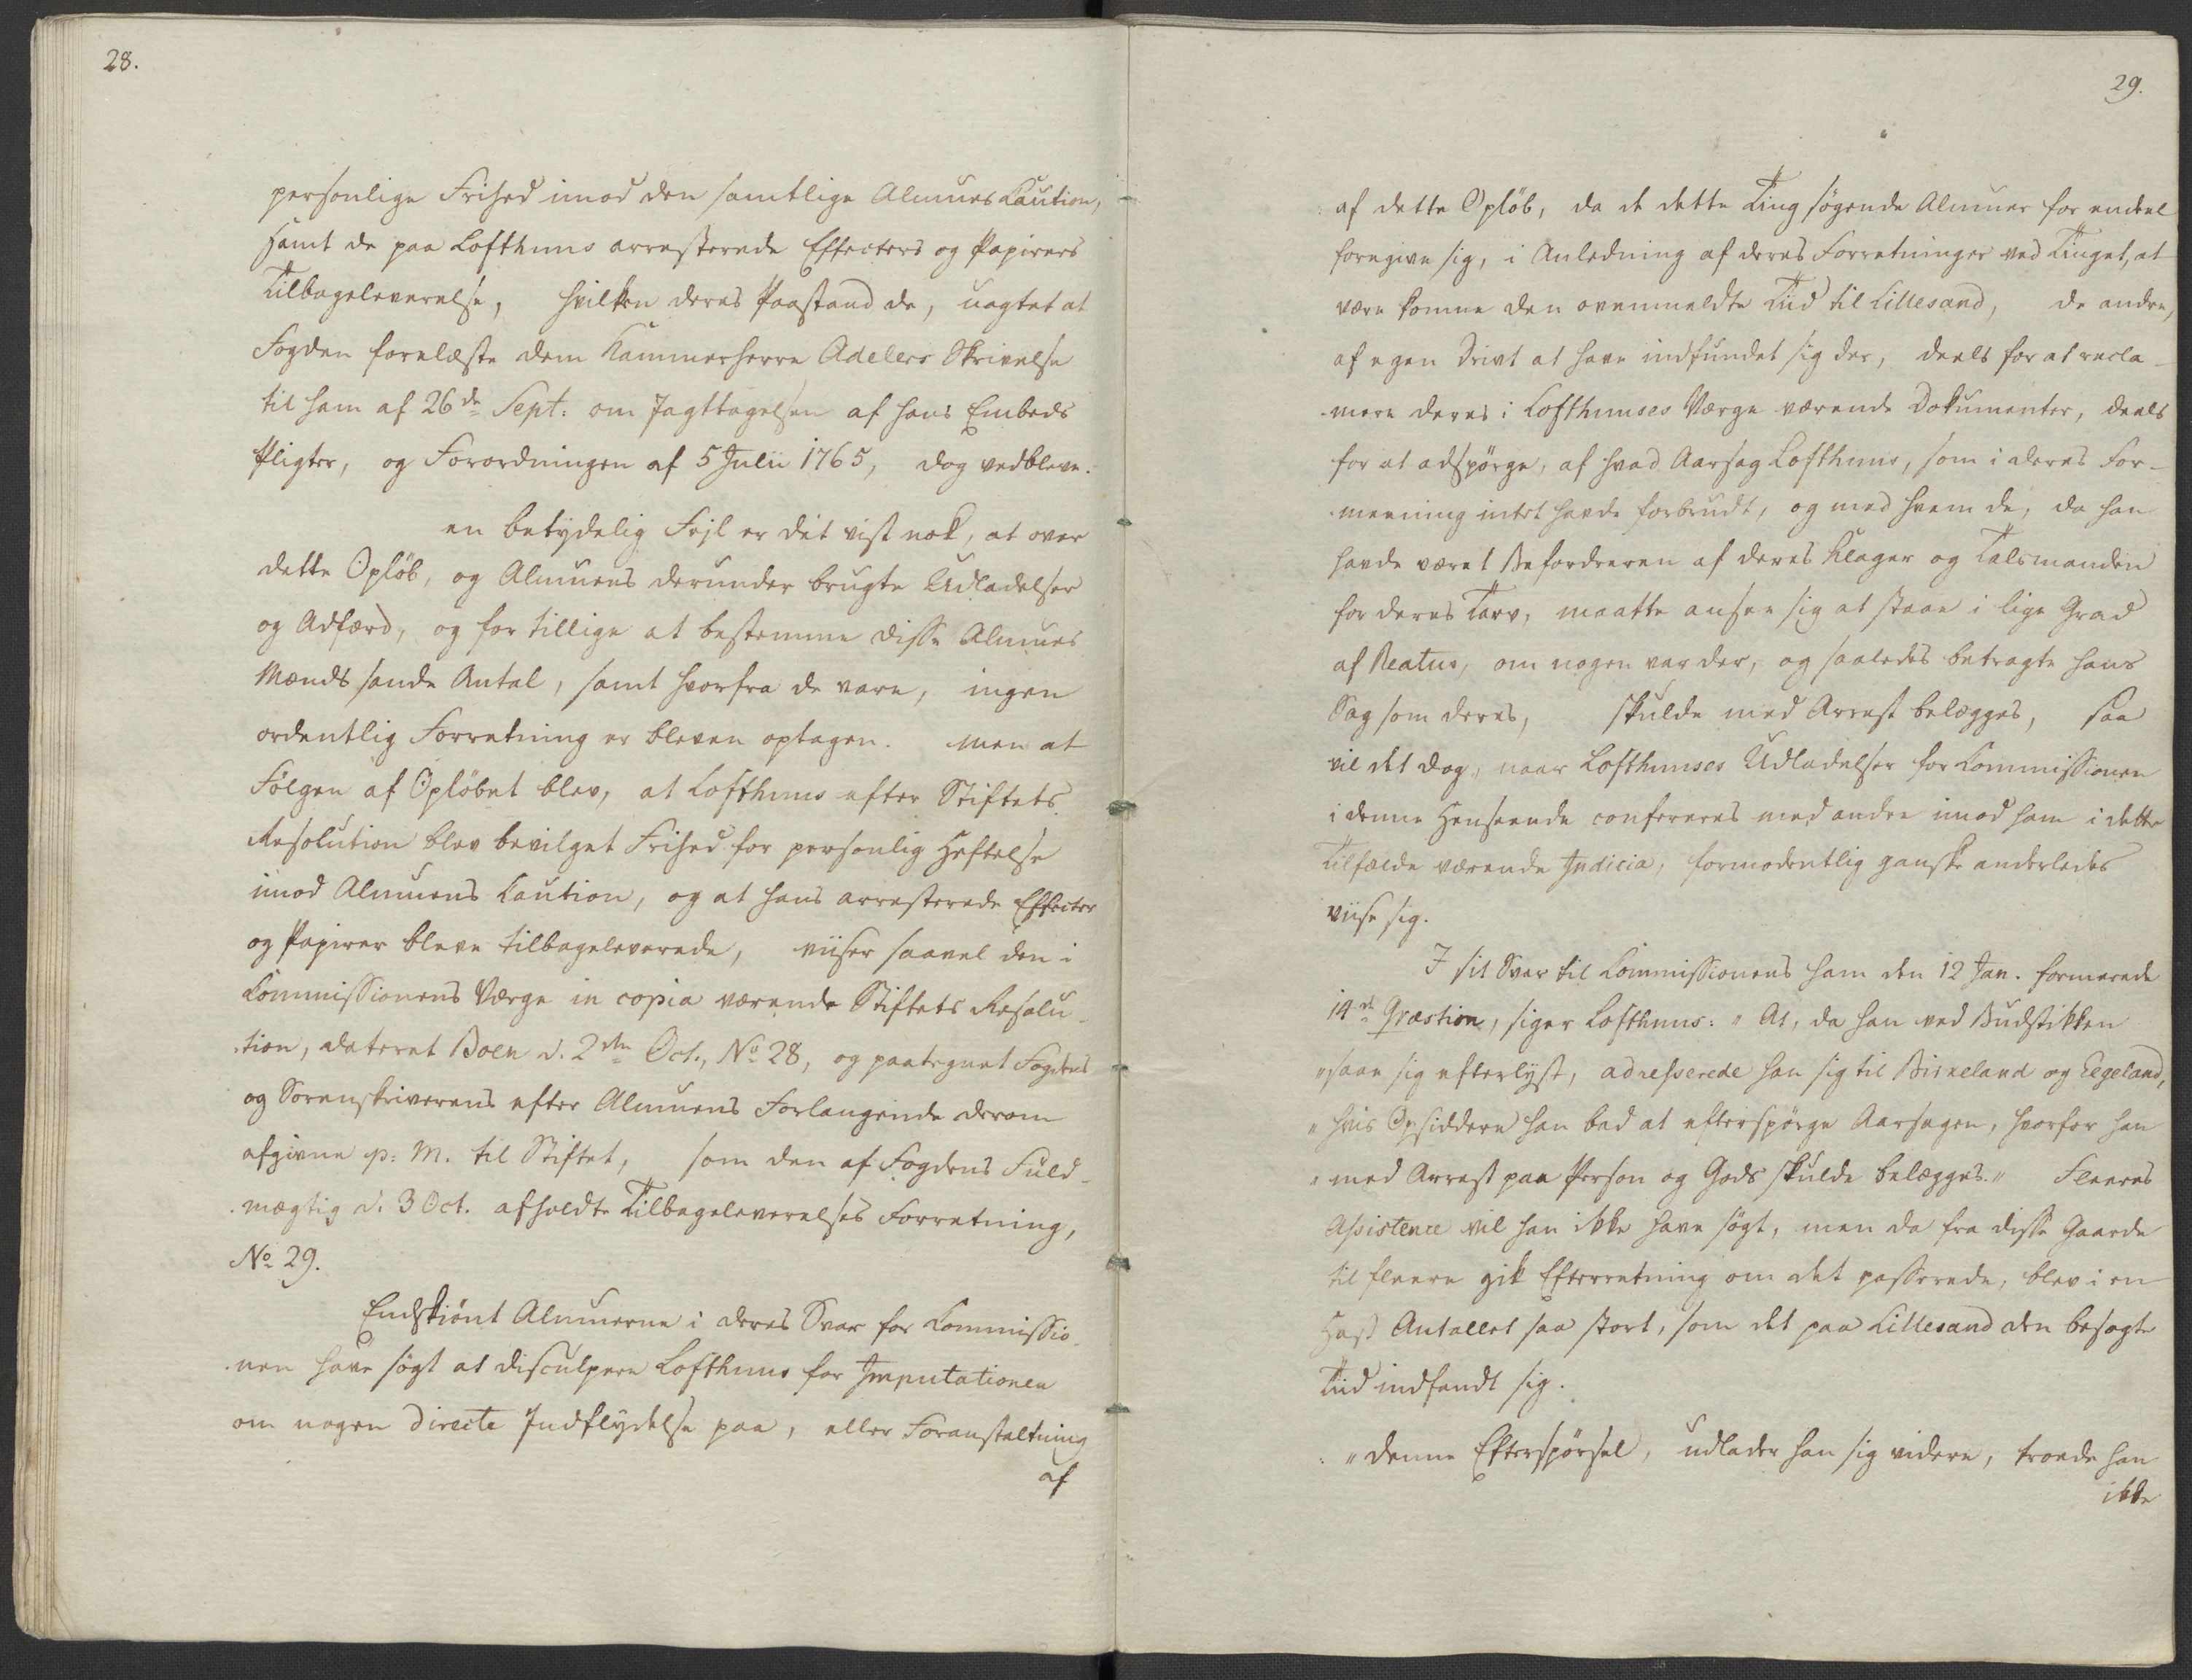 28.
personlige Frihed imod den samtlige Almues Caution,
samt de paa Lofthuus arresterede Effecters og Papirers
Tilbageleverelse, hvilken deres Paastand de, uagtet at
Fogden forelæste dem Kammerherre Adelers Skrivelse
til ham af 26de Sept: om Jagttagelsen af hans Embeds
Pligter, og Forordningen af 5 Julii 1765, dog vedbleve.
en betydelig Fejl er det vist nok, at over
dette Opløb, og Almuens derunder brugte Udladelser
og Adfærd, og for tillige at bestemme disse Almues
Mænds sande Antal, samt hvorfra de vare, ingen
ordentlig Forretning er bleven optagen. Men at
Følgen af Opløbet blev, at Lofthuus efter Stiftets
Resolution blev bevilget Frihed for personlig Heftelse
imod Almuens Caution, og at hans arresterede Effecter
og Papirer bleve tilbageleverede, viiser saavel den i
Commissionens Værge in copia værende Stiftets Resolu-
tion, dateret Boen d. 2den Oct., No 28, og paategnet Fogdens
og Sorenskriverens efter Almuens Forlangende derom
afgivne p: M. til Stiftet, som den af Fogdens Fuld-
mægtig d. 3 Oct. afholdte Tilbageleverelses Forretning,
No 29.
Endskiönt Almuerne i deres Svar for Commissio-
nen have søgt at disculpere Lofthuus for Imputationen
om nogen directe Indflydelse paa, eller Foranstaltning
af
29.
af dette Opløb, da de dette Ting søgende Almuer for endeel
foregive sig, i Anledning af deres Forretninger ved Tinget, at
være komne den ovenmeldte Tiid til Lillesand, de andre,
af egen Drivt at have indfundet sig der, deels for at recla-
mere deres i Lofthuuses Værge værende Dokumenter, deels
for at adspørge, af hvad Aarsag Lofthuus, som i deres For-
meening intet havde forbrudt, og med hvem de, da han
havde været Befordreren af deres Klager og Talsmanden
for deres Tarv, maatte ansee sig at staae i lige Grad
af Reatus, om nogen var der, og saaledes betragte hans
Sag som deres, skulde med Arrest belægges, saa
vil det dog, naar Lofthuuses Udladelser for Commissionen
i denne Henseende confereres med andre imod ham i dette
Tilfælde værende Indicia, formodentlig ganske anderledes
viise sig.
I sit Svar til Commissionens ham den 12 Jan. formerede
14de Qvæstion, siger Lofthuus: "At, da han ved Budstikken
"saae sig efterlyst, adresserede han sig til Birkeland og Eegeland,
"hvis Opsiddere han bad at efterspørge Aarsagen, hvorfor han
"med Arrest paa Person og Gods skulde belægges." Fleeres
Assistence vil han ikke have søgt, men da fra disse Gaarde
til fleere gik Efterretning om det passerede, blev i en
Hast Antallet saa stort, som det paa Lillesand den besagte
Tiid indfandt sig.
"Denne Efterspørsel, udlader han sig videre, troede han
ikke